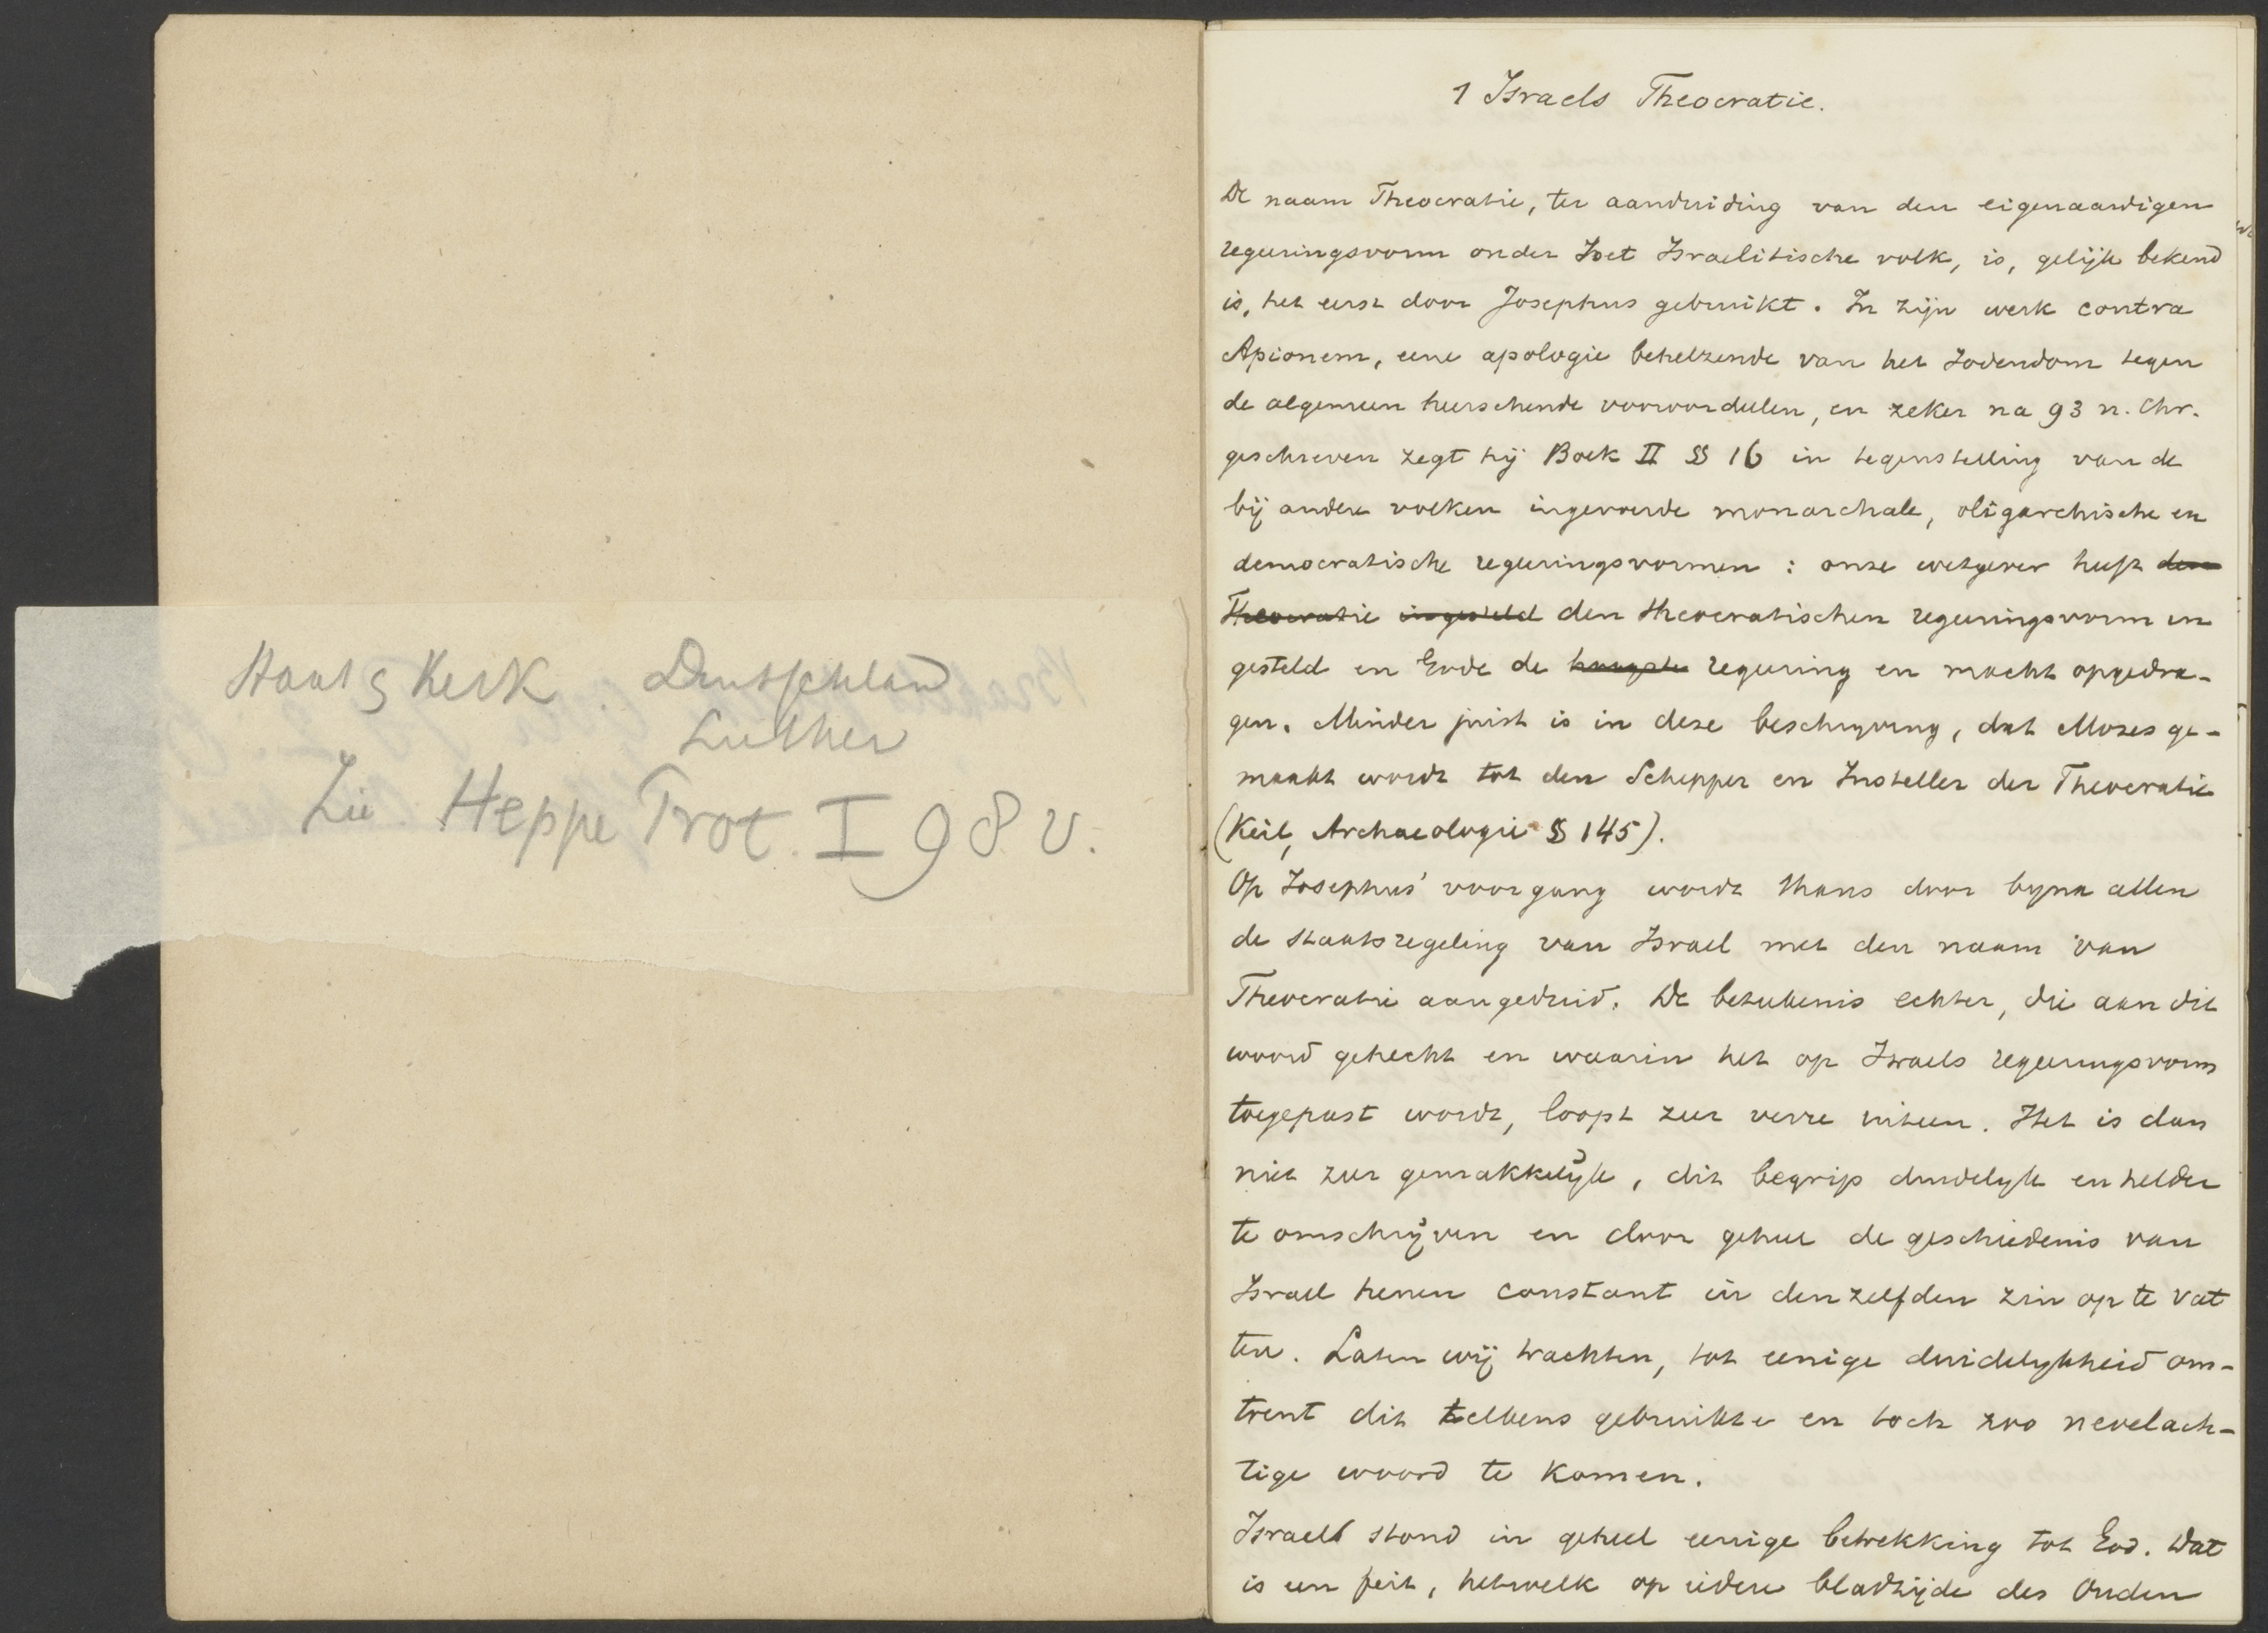 Staat & Kerk Deutschland
Luther
Zie Heppe Prot. I 98 v.
1 Israels Theocratie.
De naam Theocratie, ter aanduiding van den eigenaardigen
regeeringsvorm onder het Israelitische volk, is, gelijk bekend
is, het eerst door Josephus gebruikt. In zijn werk contra
Apionem, eene apologie behelzende van het Jodendom tegen
de algemeen heerschende vooroordeelen, en zeker na 93 n. Chr.
geschreven zegt hij Boek II § 16 in tegenstelling van de
bij andere volken ingevoerde monarchale, oligarchische en
democratische regeeringsvormen : onze wetgever heeft den
Theocratie ingesteld den theocratischen regeeringsvorm in
gesteld en Gode de hoogste regeering en macht opgedra-
gen. Minder juist is in deze beschrijving, dat Mozes ge-
maakt wordt tot den Schepper en Insteller der Theocratie
(Keil, Archaeologie § 145).
Op Josephus' voorgang wordt thans door byna allen
de staatsregeling van Israel met den naam van
Theocratie aangeduid. De beteekenis echter, die aan dit
woord gehecht en waarin het op Israels regeeringsvorm
toegepast wordt, loopt zeer verre uiteen. Het is dan
niet zeer gemakkelijk, dit begrip duidelyk en helder
te omschrijven en door geheel de geschiedenis van
Israel henen constant in denzelfden zin op te vat
ten. Laten wij trachten, tot eenige duidelykheid om-
trent dit telkens gebruikte en toch zoo nevelach-
tige woord te komen.
Israel stond in geheel eenige betrekking tot God. Dat
is een feit, hetwelk op iedere bladzijde des Ouden